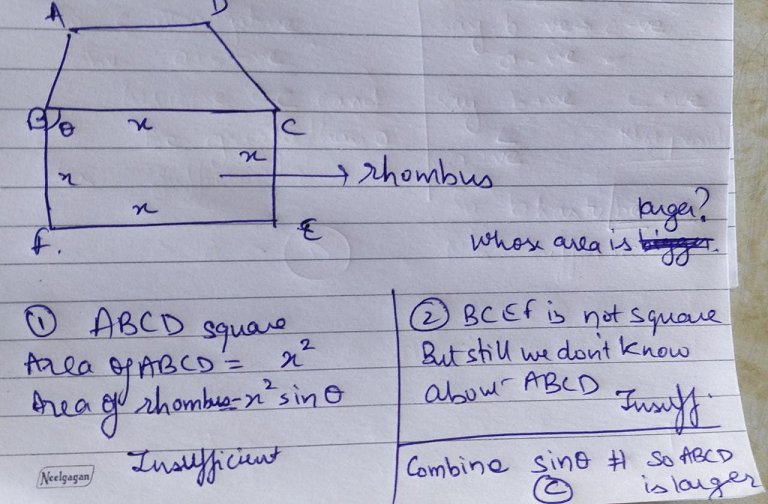 A D
B θ x C
x x
→ rhombus
x
F. E
larger?
whose area is bigger.
① ABCD square
Area of ABCD = x²
Area of rhombus = x² sin θ
Insufficient
② BCEF is not square
But still we don't know
about ABCD Insuff.
Combine sinθ ≠ 1 so ABCD
Ⓒ is larger
Neelgagan